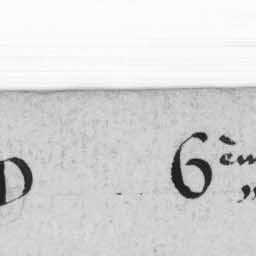 D 6èm